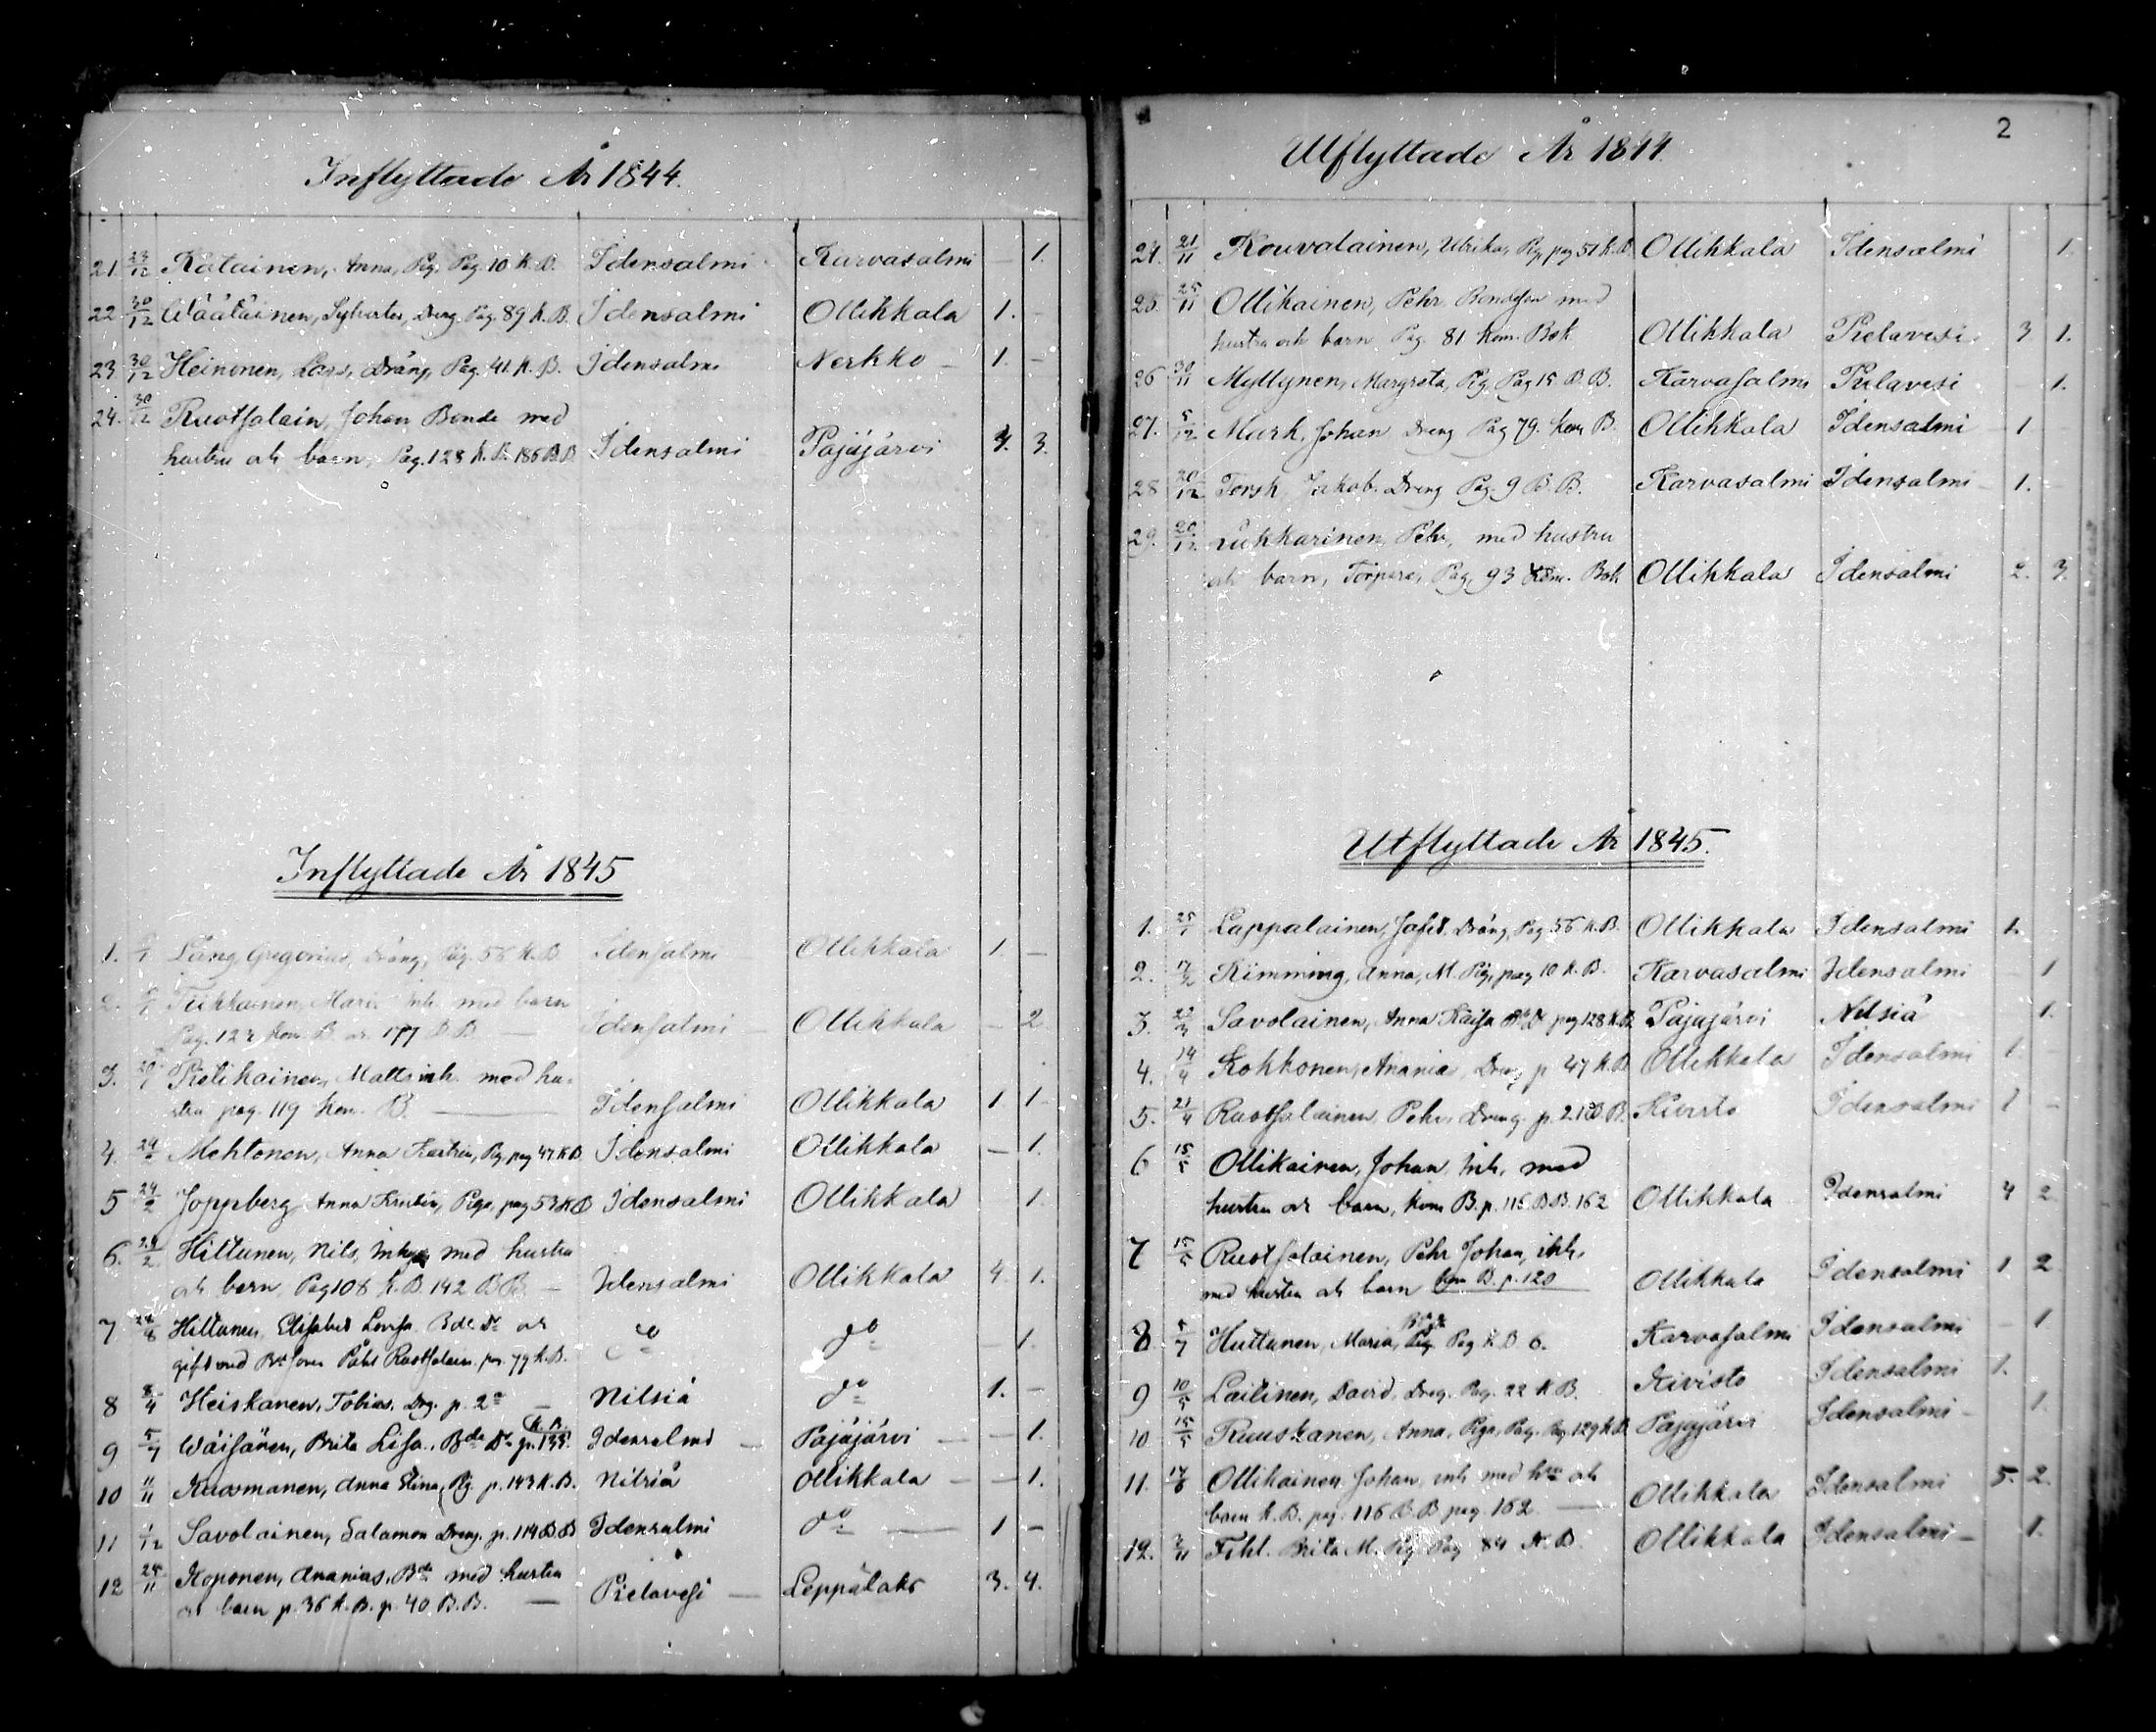 Inflyttade År 1844.
21. 23/12 Rätainen, Anna, Pig. Pag. 10 K.B. Idensalmi Karvasalmi — 1.
22 30/12 Wäätäinen, Sylvester, Dreng. Pag. 89 K.B. Idensalmi Ollikkala 1. —
23 30/12 Heinonen, Lars, Dräng, Pag. 41. K.B. Idensalmi Nerkko — 1. —
24. 30/12 Ruotsalain, Johan Bonde med
hustru och barn, Pag. 128 K.B. 186 B.B. Idensalmi Pajujärvi 3.
Inflyttade År 1845
1. Lång Gregorius, Dräng, Pag. 56 K.B. Idensalmi Ollikkala 1. —
2. Tiikkainen, Maria Inh. med barn
Pag. Kom. B. och 177 B.B. — Idensalmi Ollikkala — 2
3. Pietikainen, Matts inh. med hu-
stru pag. 119 Kom. B. — Idensalmi Ollikkala 1 1
4. Mehtonen, Anna Kattrin, Pig. pag 47 K.B. Idensalmi Ollikkala — 1.
5 24/2 Joppberg Anna Kristin, Piga, pag 53 K.B Idensalmi Ollikkala 1.
6. 24/2 Hiltunen, Nils, Inhys med hustru
och barn, Pag 108 K.B. 142 B.B. — Idensalmi Ollikkala 4. 1.
7 Hiltunen, Elisabet Lovisa Bde Dr och
gift med Påhl Ruotsalain. pag. 79 K.B. do do — 1.
8 8/4 Heiskanen, Tobias, Drg. p. 2 — Nilsiä do 1. —
9 5/7 Wäisänen, Brita Lisa, Bde Dr p. 135. K.B. Idensalmi — Pajujärvi — — 1.
10 11/11 Kuosmanen, Anna Stina, Pig. p. 143 K.B. Nilsiä Ollikkala — — 1.
11 1/12 Savolainen, Salamon Dreng. p. 114 B.B Idensalmi do — 1 —
12 Koponen, Ananias, Bde med hustru
och barn p. 36 K.B. p. 40 B.B. — Pielavesi — Leppälaks 3. 4.
2
Utflyttade År 1844.
24. 21/11 Kouvalainen, Ulrika, Pig, pag 51 K.B. Ollikkala Idensalmi 1.
25. 25/11 Ollikainen, Pehr Bondeson med
hustru och barn Pag. 81 Kom. Bok Ollikkala Pielavesi 3 1.
26 30/11 Myllynen, Margreta, Pig. Pag 15 B.B. Karvasalmi Pielavesi 1.
27. 5/12 Mark, Johan Dreng Pag 79. Kom B. Ollikkala Idensalmi 1
28 20/12 Torsk Jakob. Dreng Pag. 9 B.B. Karvasalmi Idensalmi — 1.
29. 20/12 Pehr, med hustru
och barn, Torpare, Pag. 93 Kom. Bok Ollikkala Idensalmi 2. 3.
Utflyttade År 1845.
1. 25/1 Lappalainen, Josef. Dräng, Pag 56 K.B. Ollikkala Idensalmi 1.
2. Kimming, Anna, M. Pig, pag 10 K.B. Karvasalmi Idensalmi 1
3. Savolainen, Anna Kaisa Bde Dr pag 128 K.B. Pajujärvi Nilsiä 1.
4. 14/4 Kokkonen, Ananias, Dreng p. 47 K.B Ollikkala Idensalmi 1. —
5. 21/4 Ruotsalainen, Pehr, Dreng. p. B. Kivisto Idensalmi 1 —
6 15/5 Ollikainen, Johan, Inh. med
hustru och barn, Kom B. p. 116 B.B. 162 Ollikkala Idensalmi 4 2
7 15/5 Ruotsalainen, Pehr Johan, inh.
med hustru och barn Kom B. p. 120 Ollikkala Idensalmi 1. 2
8. 5/7 Huttunen, Maria, Pag K.B 6. Karvasalmi Idensalmi — 1
9 10/5 Laitinen, David, Dreg. Pag. 22 K.B. Kivisto Idensalmi 1.
10 15/5 Ruuskanen, Anna, Piga, Pag. 129 K.B. Pajujärvi Idensalmi — 1.
11. Ollikainen Johan, inh med hru och
barn K.B. pag. 116 B.B pag. 162 — Ollikkala Idensalmi 5. 2.
12. Brita M. Pig. Pag 84 K.B. Ollikkala Idensalmi — 1.